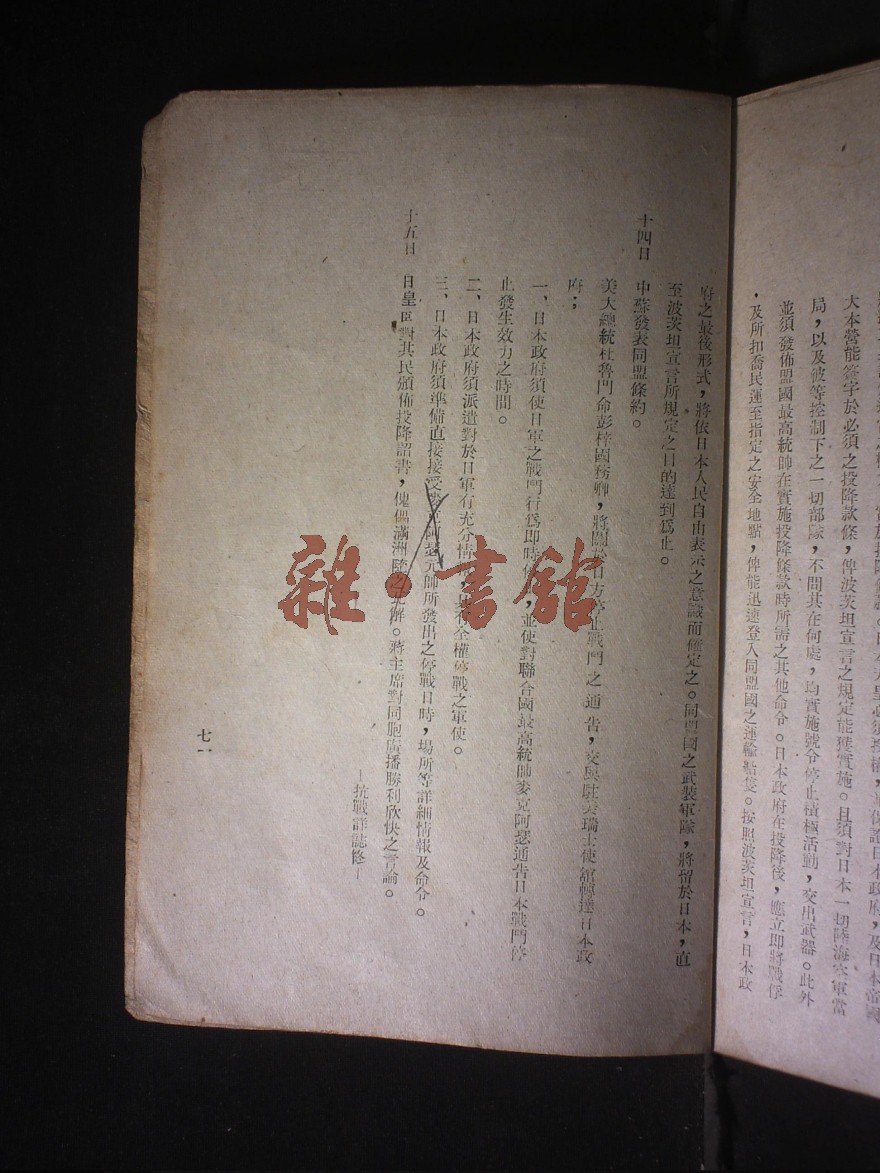 大本營能簽字於必須之投降款條，俾波茨坦宣言之規定能獲實施。且須對日本一切陸海空軍當
局，以及彼等控制下之一切部隊，不問其在何處，均實施號令停止積極活動，交出武器。此外
並須發佈盟國最高統帥在實施投降條款時所需之其他命令。日本政府在投降後，應立即將戰俘
，及所扣喬民運至指定之安全地點，俾能迅速登入同盟國之運輸船隻。按照波茨坦宣言，日本政
府之最後形式，將依日本人民自由表示之意識而確定之。同盟國之武裝軍隊，將留於日本，直
至波茨坦宣言所規定之目的達到爲止。
十四日　中蘇發表同盟條約。
美大總統杜魯門命彭梓國務卿，將關於日方停止戰鬥之通告，交與駐美瑞士使舘轉達日本政
府；
一、日本政府須使日軍之戰鬥行爲即時，並使對聯合國最高統帥麥克阿瑟通告日本戰鬥停
止發生效力之時間。
二、日本政府須派遣對於日軍有充分情具有全權停戰之軍使。
三、日本政府須準備直接接受麥克阿瑟元帥所發出之停戰日時，場所等詳細情報及命令。
十五日　日皇對其民頒佈投降詔書，傀儡滿洲隨之瓦解。蔣主席對同胞廣播勝利欣快之言論。
—抗戰詳誌終—
七一
雜·書館